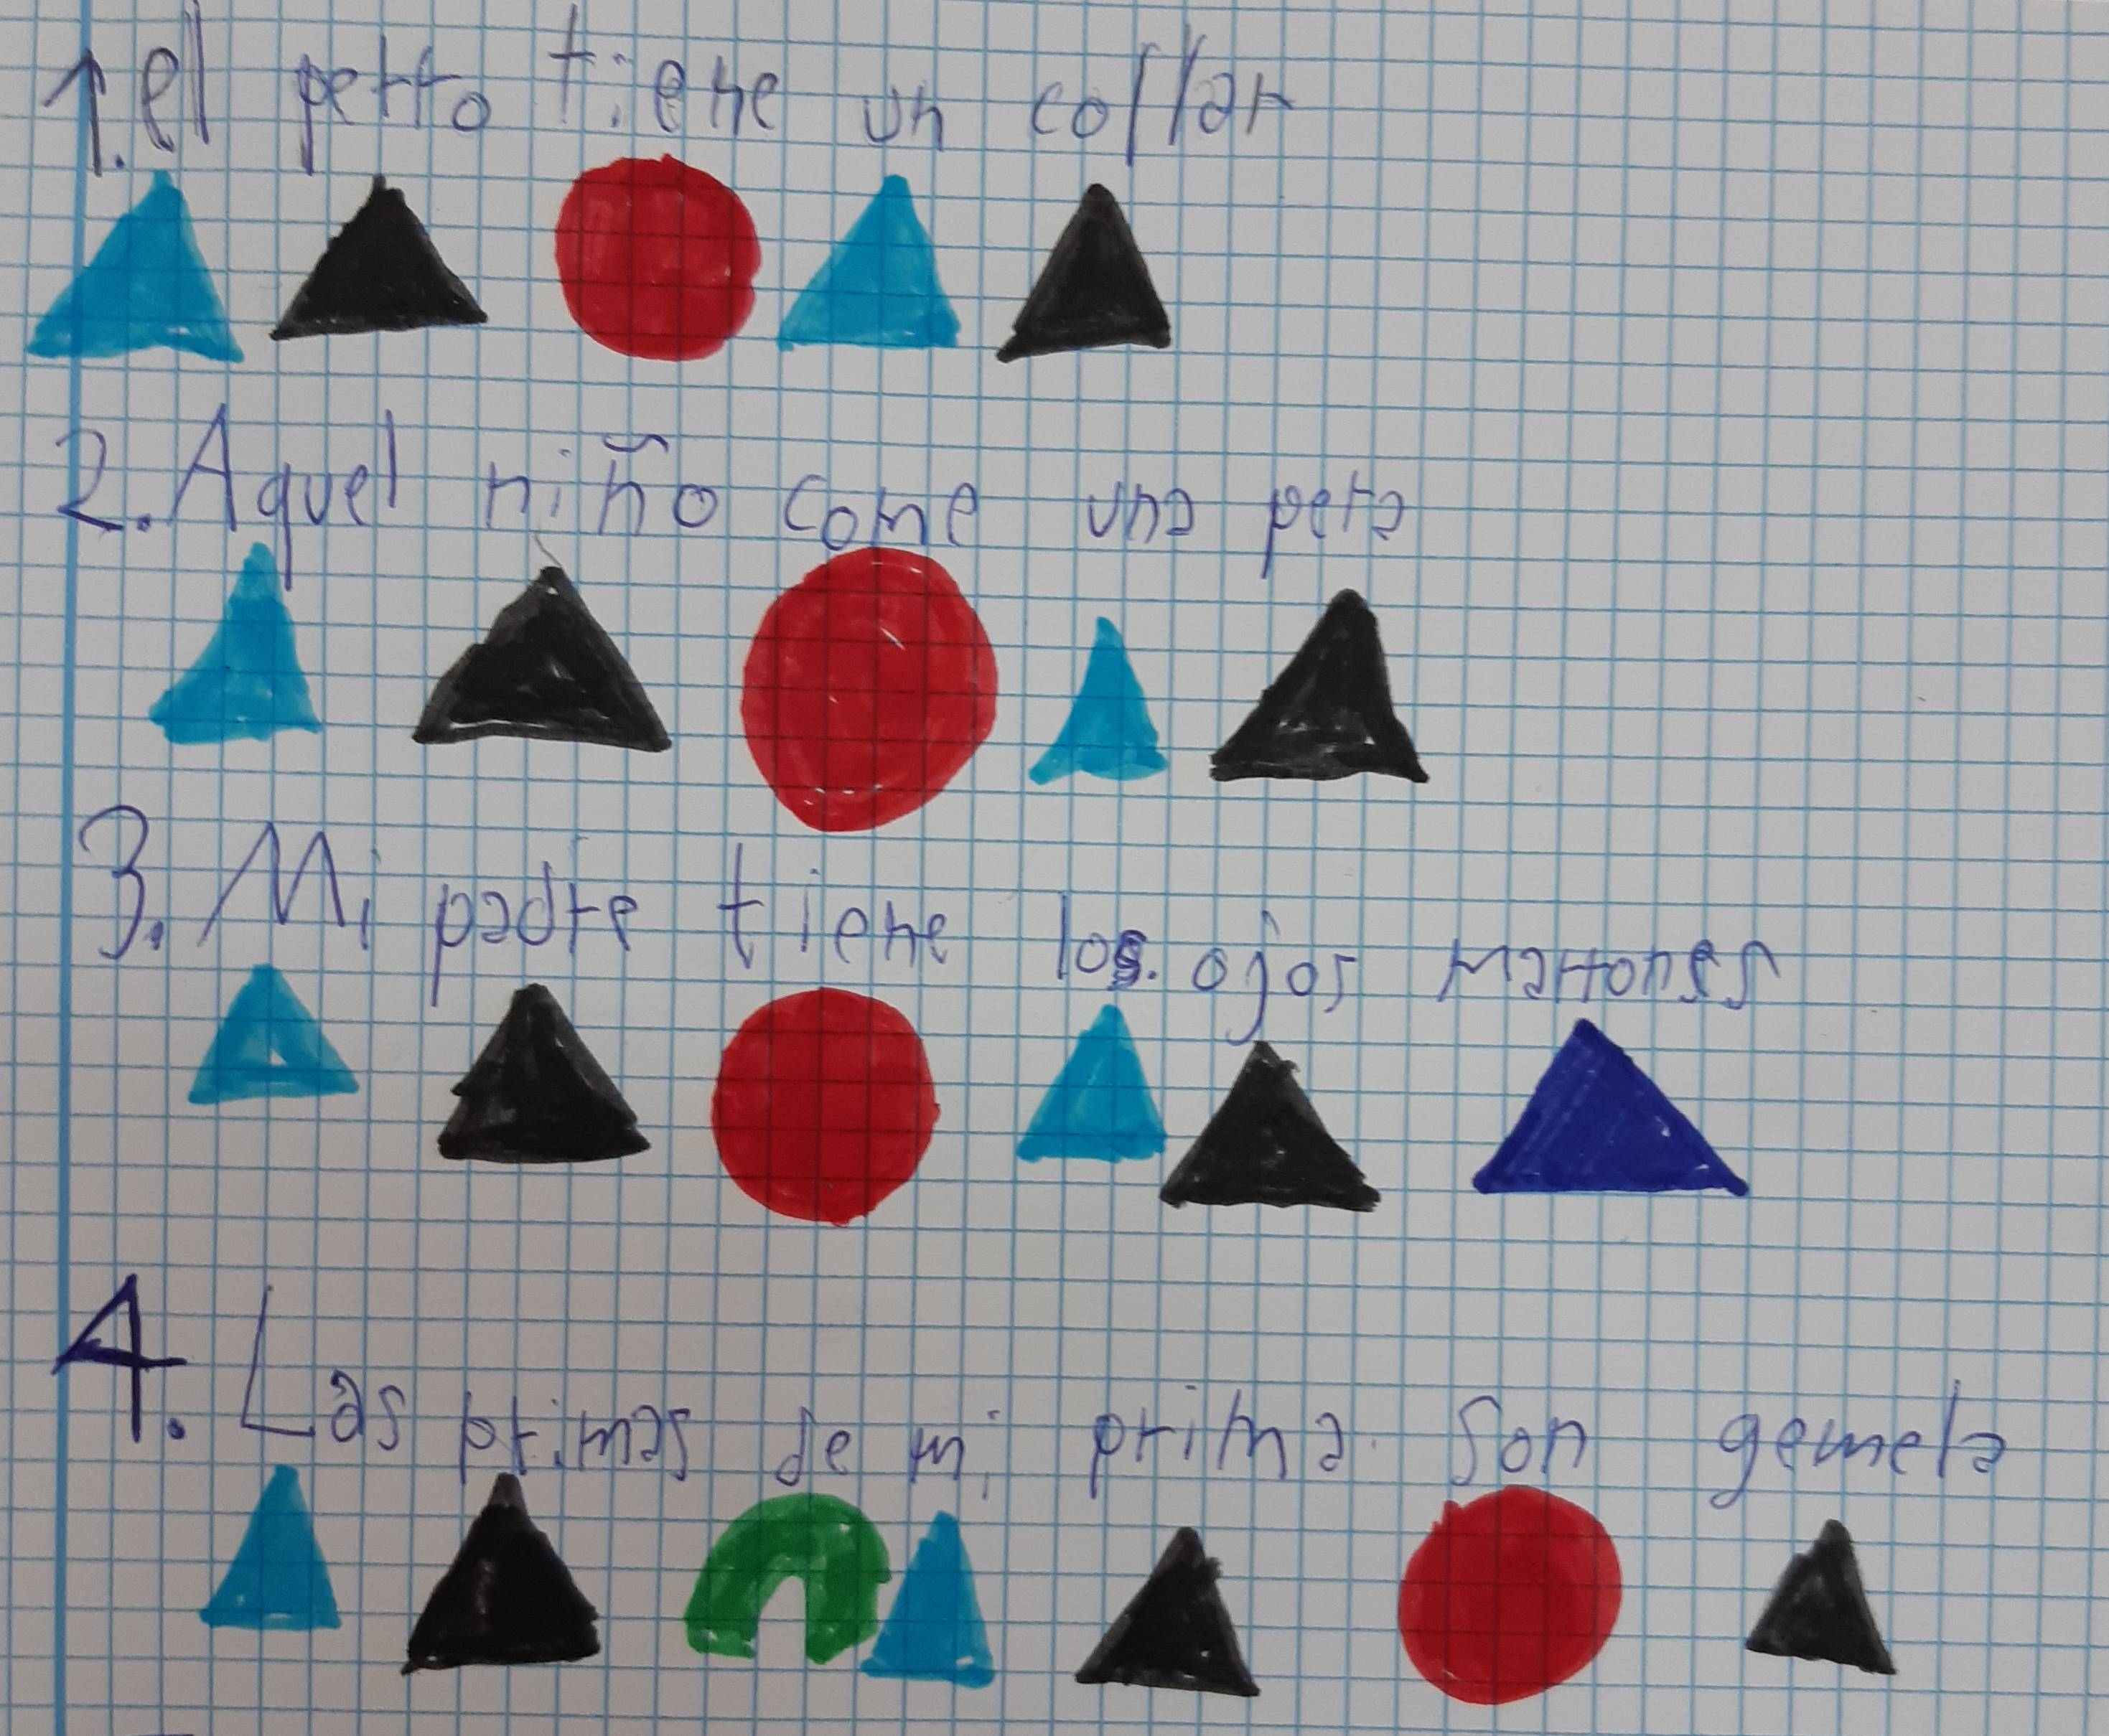 1. el perro tiene un collar
2. Aquel niño come una pera
3. Mi padre tiene los ojos marrones
4. Las primas de mi prima son gemela